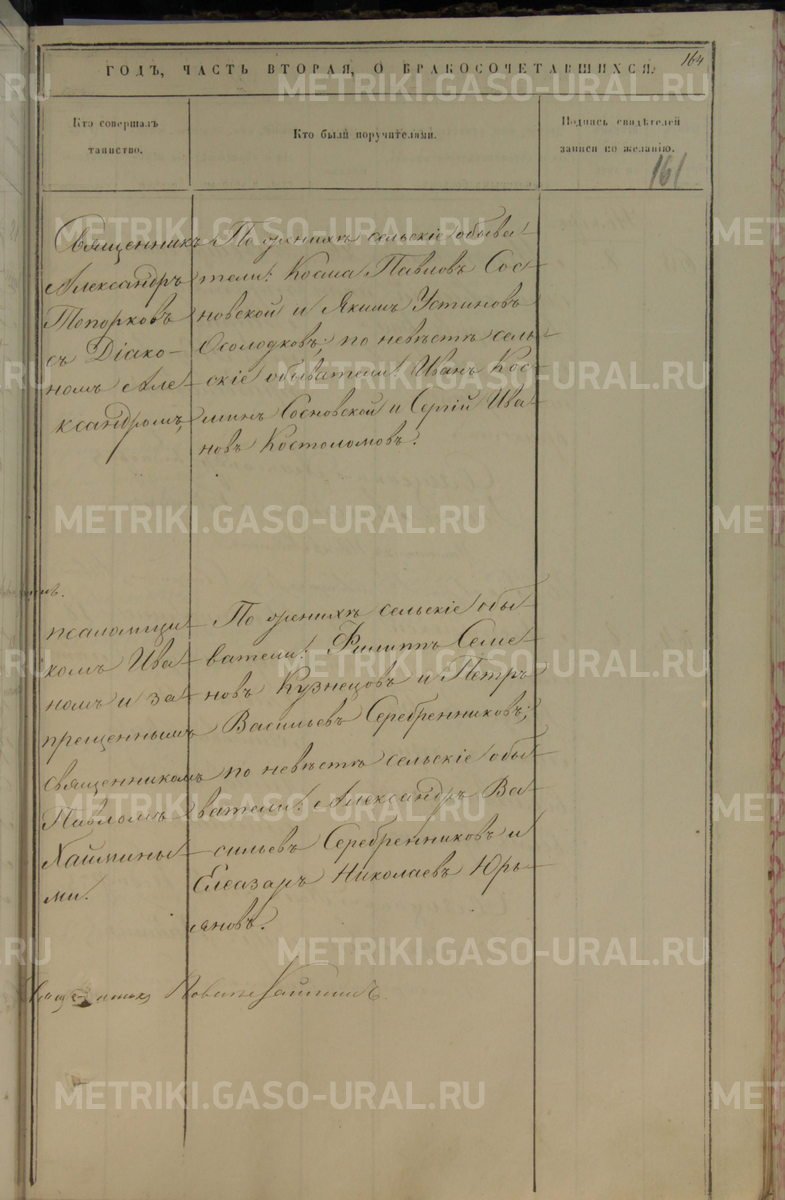 164
ГОДЪ, ЧАСТЬ ВТОРАЯ, О БРАКОСОЧЕТАВШИХСЯ.
Кто совершалъ
таинство.
Кто были поручителями.
Подпись свидѣтелей
записи по желанію.
161
Священникъ
Александръ
Топорковъ
съ Діако-
номъ Але-
ксандромъ,
По женихѣ сельскіе обыва-
тели: Косма Павловъ Сос-
новской и Якимъ Устиновъ
Осолодковъ; по невѣстѣ сель-
скіе обыватели: Иванъ Кос-
минъ Сосновской и Сергій Ива-
новъ Костоломовъ.
псаломщи-
комъ Ива-
номъ и за-
прещеннымъ
Священникомъ
Павломъ
Хаймины-
ми.
По женихѣ сельскіе обы-
ватели: Филиппъ Семе-
новъ Кузнецовъ и Петръ
Васильевъ Серебренниковъ;
по невѣстѣ сельскіе обы-
ватели: Александръ Ва-
сильевъ Серебренниковъ и
Елеазаръ Николаевъ Юрь-
яновъ.
METRIKI.GASO-URAL.RU